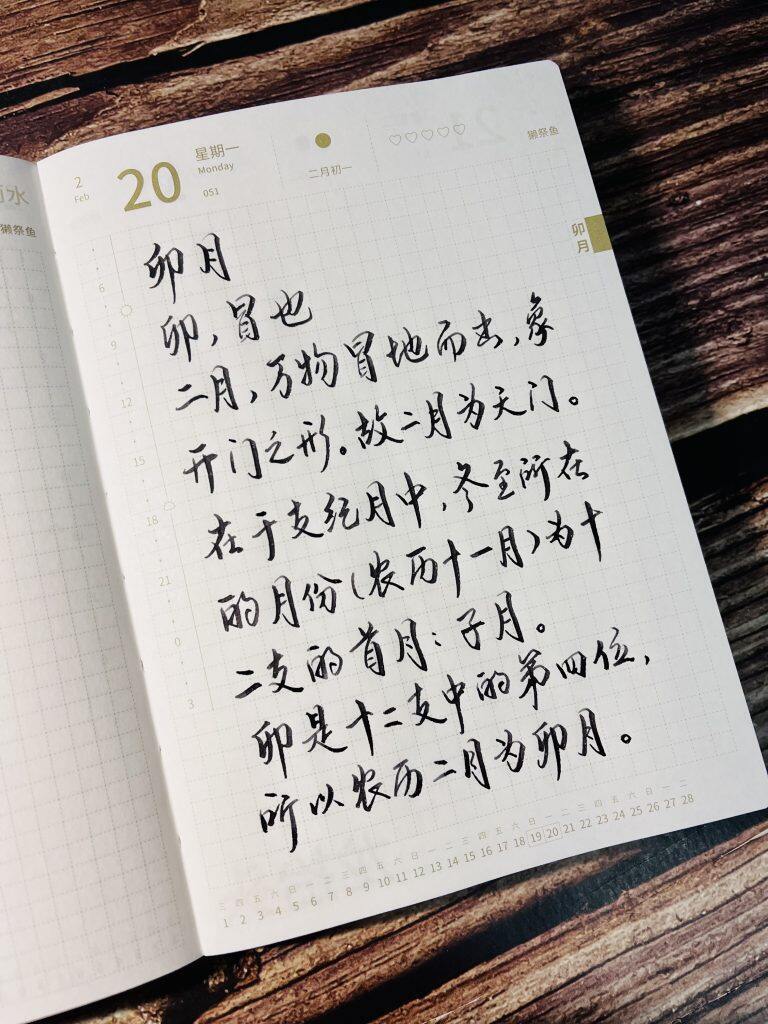 2
Feb
20
星期一
Monday
051
二月初一
♡♡♡♡♡
獭祭鱼
水
獭祭鱼
卯
月
卯月
卯,冒也
二月,万物冒地而出,象
开门之形。故二月为天门。
在干支纪月中,冬至所在
的月份(农历十一月)为十
二支的首月:子月。
卯是十二支中的第四位,
所以农历二月为卯月。
6
9
12
15
18
21
0
3
三 四 五 六 日 一 二 三 四 五 六 日 一 二 三 四 五 六 日 一 二 三 四 五 六 日 一 二
1 2 3 4 5 6 7 8 9 10 11 12 13 14 15 16 17 18 19 20 21 22 23 24 25 26 27 28